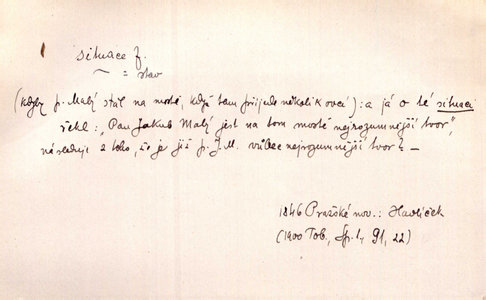 situace f.
~ = stav
(kdyby p. Malý stál na mostě, když tam přijede několik ovcí): a já o té situaci
řekl: „Pan Jakub Malý jest na tom mostě nejrozumnější tvor“,
následuje z toho, že je již p. J. M. vůbec nejrozumnější tvor? –
1846 Pražské nov.: Havlíček
(1900 Tob, Sp. I, 91, 22)